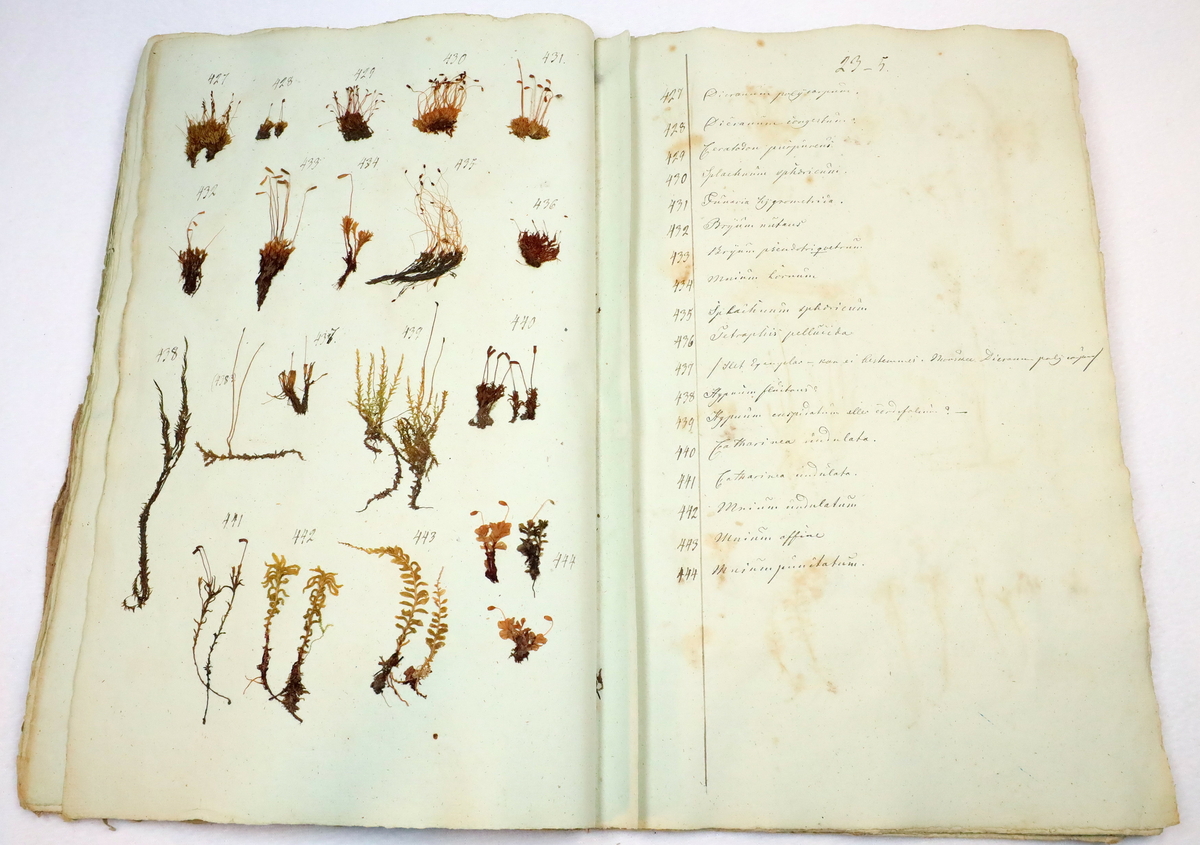 427 428 429 430 431.
432 433 434 435 436
438 (438) 437. 439 440
441 442 443 444
23-5.
427 Dicranum polycarpum.
428 Dicranum congestum?
429 Ceratodon purpureus.
430 Splachnum sphæricum.
431 Funaria hygrometrica.
432 Bryum nutans
433 Bryum pseudotriquetrum
434 Mnium
435 Splachnum sphæricum
436 Tetraphis pellucida
437 kan ei bestemmes. Dicranum
438 Hypnum fluitans?
439 Hypnum cuspidatum eller cordifolium? —
440 Catharinea undulata.
441 Catharinea undulata.
442 Mnium undulatum
443 Mnium affine
444 Mnium punctatum.